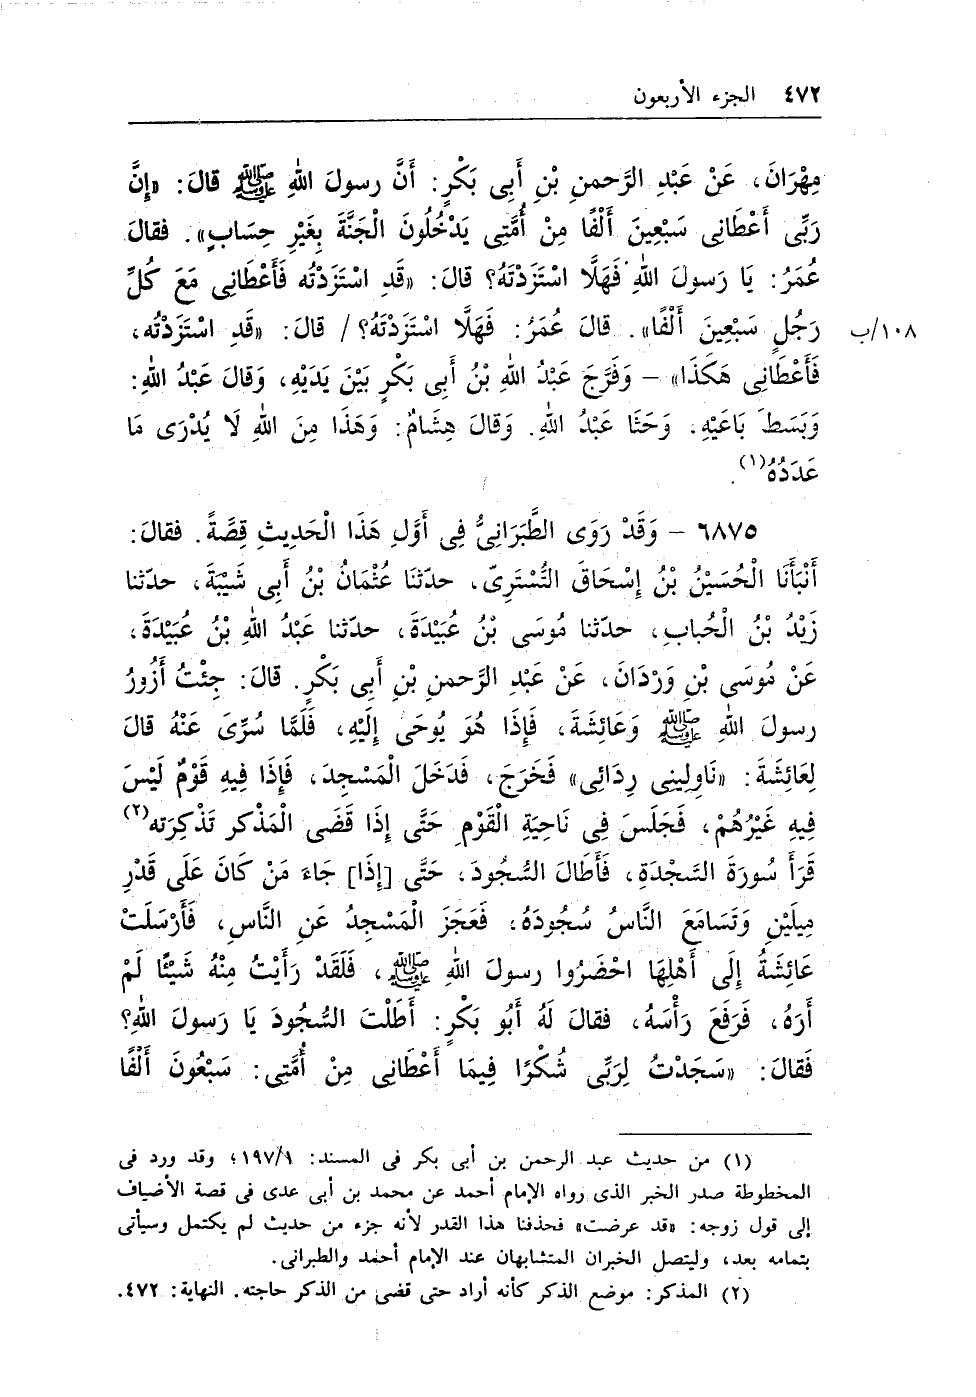 ٤٧٢ الجزء الأربعون
مِهْرَانَ، عَنْ عَبْدِ الرَّحمنِ بْنِ أَبِى بَكْرٍ: أَنَّ رسولَ اللهِ ﷺ قالَ: «إِنَّ
رَبِّى أَعْطَانِى سَبْعِينَ أَلْفًا مِنْ أُمَّتِى يَدْخُلُونَ الْجَنَّةَ بِغَيْرِ حِسَابٍ». فقالَ
عُمَرُ: يَا رَسولَ اللهِ فَهَلَّا اسْتَزَدْتَهُ؟ قالَ: «قَدِ اسْتَزَدْتُه فَأَعْطَانِى مَعَ كُلِّ
رَجُلٍ سَبْعِينَ أَلْفًا». قالَ عُمَرُ: فَهَلَّا اسْتَزَدْتَهُ؟ / قالَ: «قَدِ اسْتَزَدْتُه، ١٠٨/ب
فَأَعْطَانِى هَكَذَا» – وَفَرَّجَ عَبْدُ اللهِ بْنُ أَبِى بَكْرٍ بَيْنَ يَدَيْهِ، وَقالَ عَبْدُ اللهِ:
وَبَسَطَ بَاعَيْهِ. وَحَثَا عَبْدُ اللهِ. وَقالَ هِشَامٌ: وَهَذَا مِنَ اللهِ لَا يُدْرَى مَا
عَدَدُهُ(١).
٦٨٧٥ – وَقَدْ رَوَى الطَّبَرَانِىُّ فِى أَوَّلِ هَذَا الْحَدِيثِ قِصَّةً. فقالَ:
أَنْبَأَنَا الْحُسَيْنُ بْنُ إِسْحَاقَ التُّسْتَرِىّ، حدّثنَا عُثْمَانُ بْنُ أَبِى شَيْبَةَ، حدّثنا
زَيْدُ بْنُ الْحُبابِ، حدّثنا مُوسَى بْنُ عُبَيْدَةَ، حدّثنا عَبْدُ اللهِ بْنُ عُبَيْدَةَ،
عَنْ مُوسَى بْنِ وَرْدَانَ، عَنْ عَبْدِ الرَّحمنِ بْنِ أَبِى بَكْرٍ. قالَ: جِئْتُ أَزُورُ
رسولَ اللهِ ﷺ وَعَائِشَةَ، فَإِذَا هُوَ يُوحَى إِلَيْهِ، فَلَمَّا سُرِّىَ عَنْهُ قالَ
لِعَائِشَةَ: «نَاوِلِينِى رِدَائِى» فَخَرَجَ، فَدَخَلَ الْمَسْجِدَ، فَإِذَا فِيهِ قَوْمٌ لَيْسَ
فِيهِ غَيْرُهُمْ، فَجَلَسَ فِى نَاحِيَةِ الْقَوْمِ حَتَّى إِذَا قَضَى الْمَذْكر تَذْكِرَته(٢)
قَرَأَ سُورَةَ السَّجْدَةِ، فَأَطَالَ السُّجُودَ، حَتَّى [إِذَا] جَاءَ مَنْ كَانَ عَلَى قَدْرِ
مِيلَيْنِ وَتَسَامَعَ النَّاسُ سُجُودَهُ، فَعَجَزَ الْمَسْجِدُ عَنِ النَّاسِ، فَأَرْسَلَتْ
عَائِشَةُ إِلَى أَهْلِهَا احْضَرُوا رسولَ اللهِ ﷺ، فَلَقَدْ رَأَيْتُ مِنْهُ شَيْئًا لَمْ
أَرَهُ، فَرَفَعَ رَأْسَهُ، فقالَ لَهُ أَبُو بَكْرٍ: أَطَلْتَ السُّجُودَ يَا رَسولَ اللهِ؟
فَقالَ: «سَجَدْتُ لِرَبِّى شُكْرًا فِيمَا أَعْطَانِى مِنْ أُمَّتِى: سَبْعُونَ أَلْفًا
(١) من حديث عبد الرحمن بن أبى بكر فى المسند: ١٩٧/١؛ وقد ورد فى
المخطوطة صدر الخبر الذى رواه الإمام أحمد عن محمد بن أبى عدى فى قصة الأضياف
إلى قول زوجه: «قد عرضت» فحذفنا هذا القدر لأنه جزء من حديث لم يكتمل وسيأتى
بتمامه بعد، وليتصل الخبران المتشابهان عند الإمام أحمد والطبرانى.
(٢) المذكر: موضع الذكر كأنه أراد حتى قضى من الذكر حاجته. النهاية: ٤٧٢.